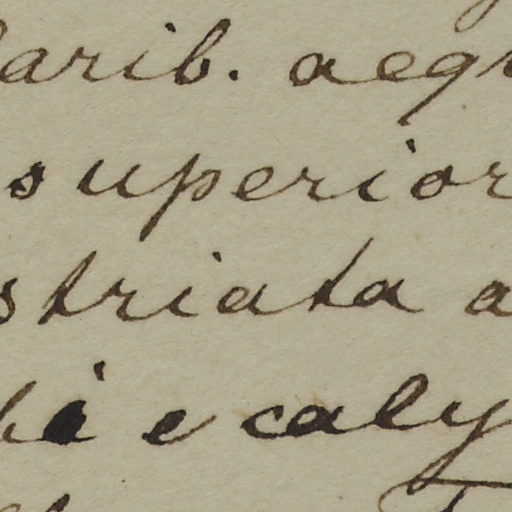 arib. aeq
superior
striata a
e caly